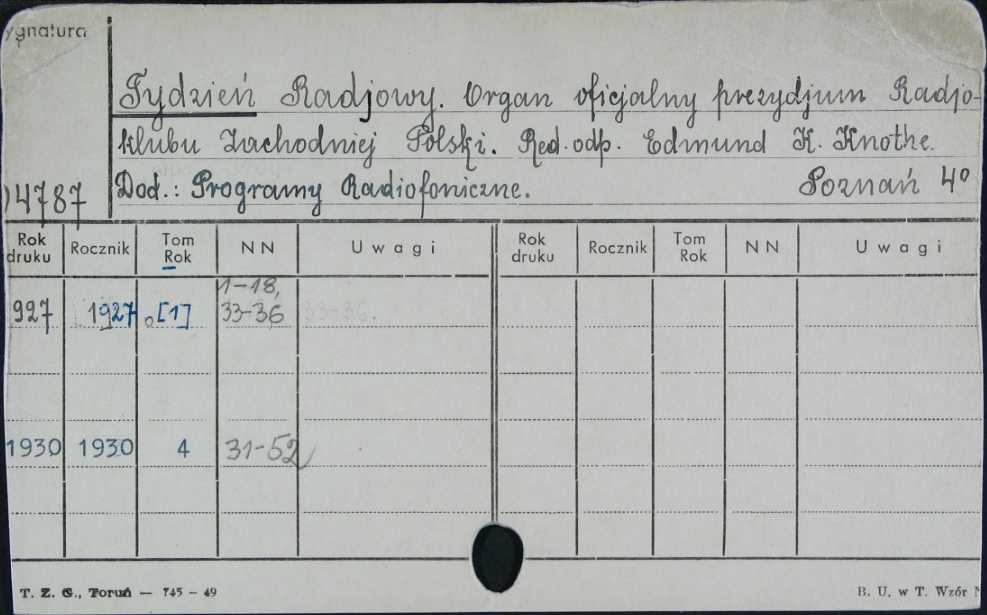 ygnatura
Tydzień Radjowy. Organ oficjalny prezydjum Radjo-
klubu Zachodniej Polski. Red. odp. Edmund K. Knothe.
)4787 Dod.: Programy Radiofoniczne. Poznań 4º
Rok druku Rocznik Tom Rok NN Uwagi Rok druku Rocznik Tom Rok NN Uwagi
1-18,
927 1927 [1] 33-36 33-36.
1930 1930 4 31-52
T. Z. G., Toruń — 745 - 49 B. U. w T. Wzór N